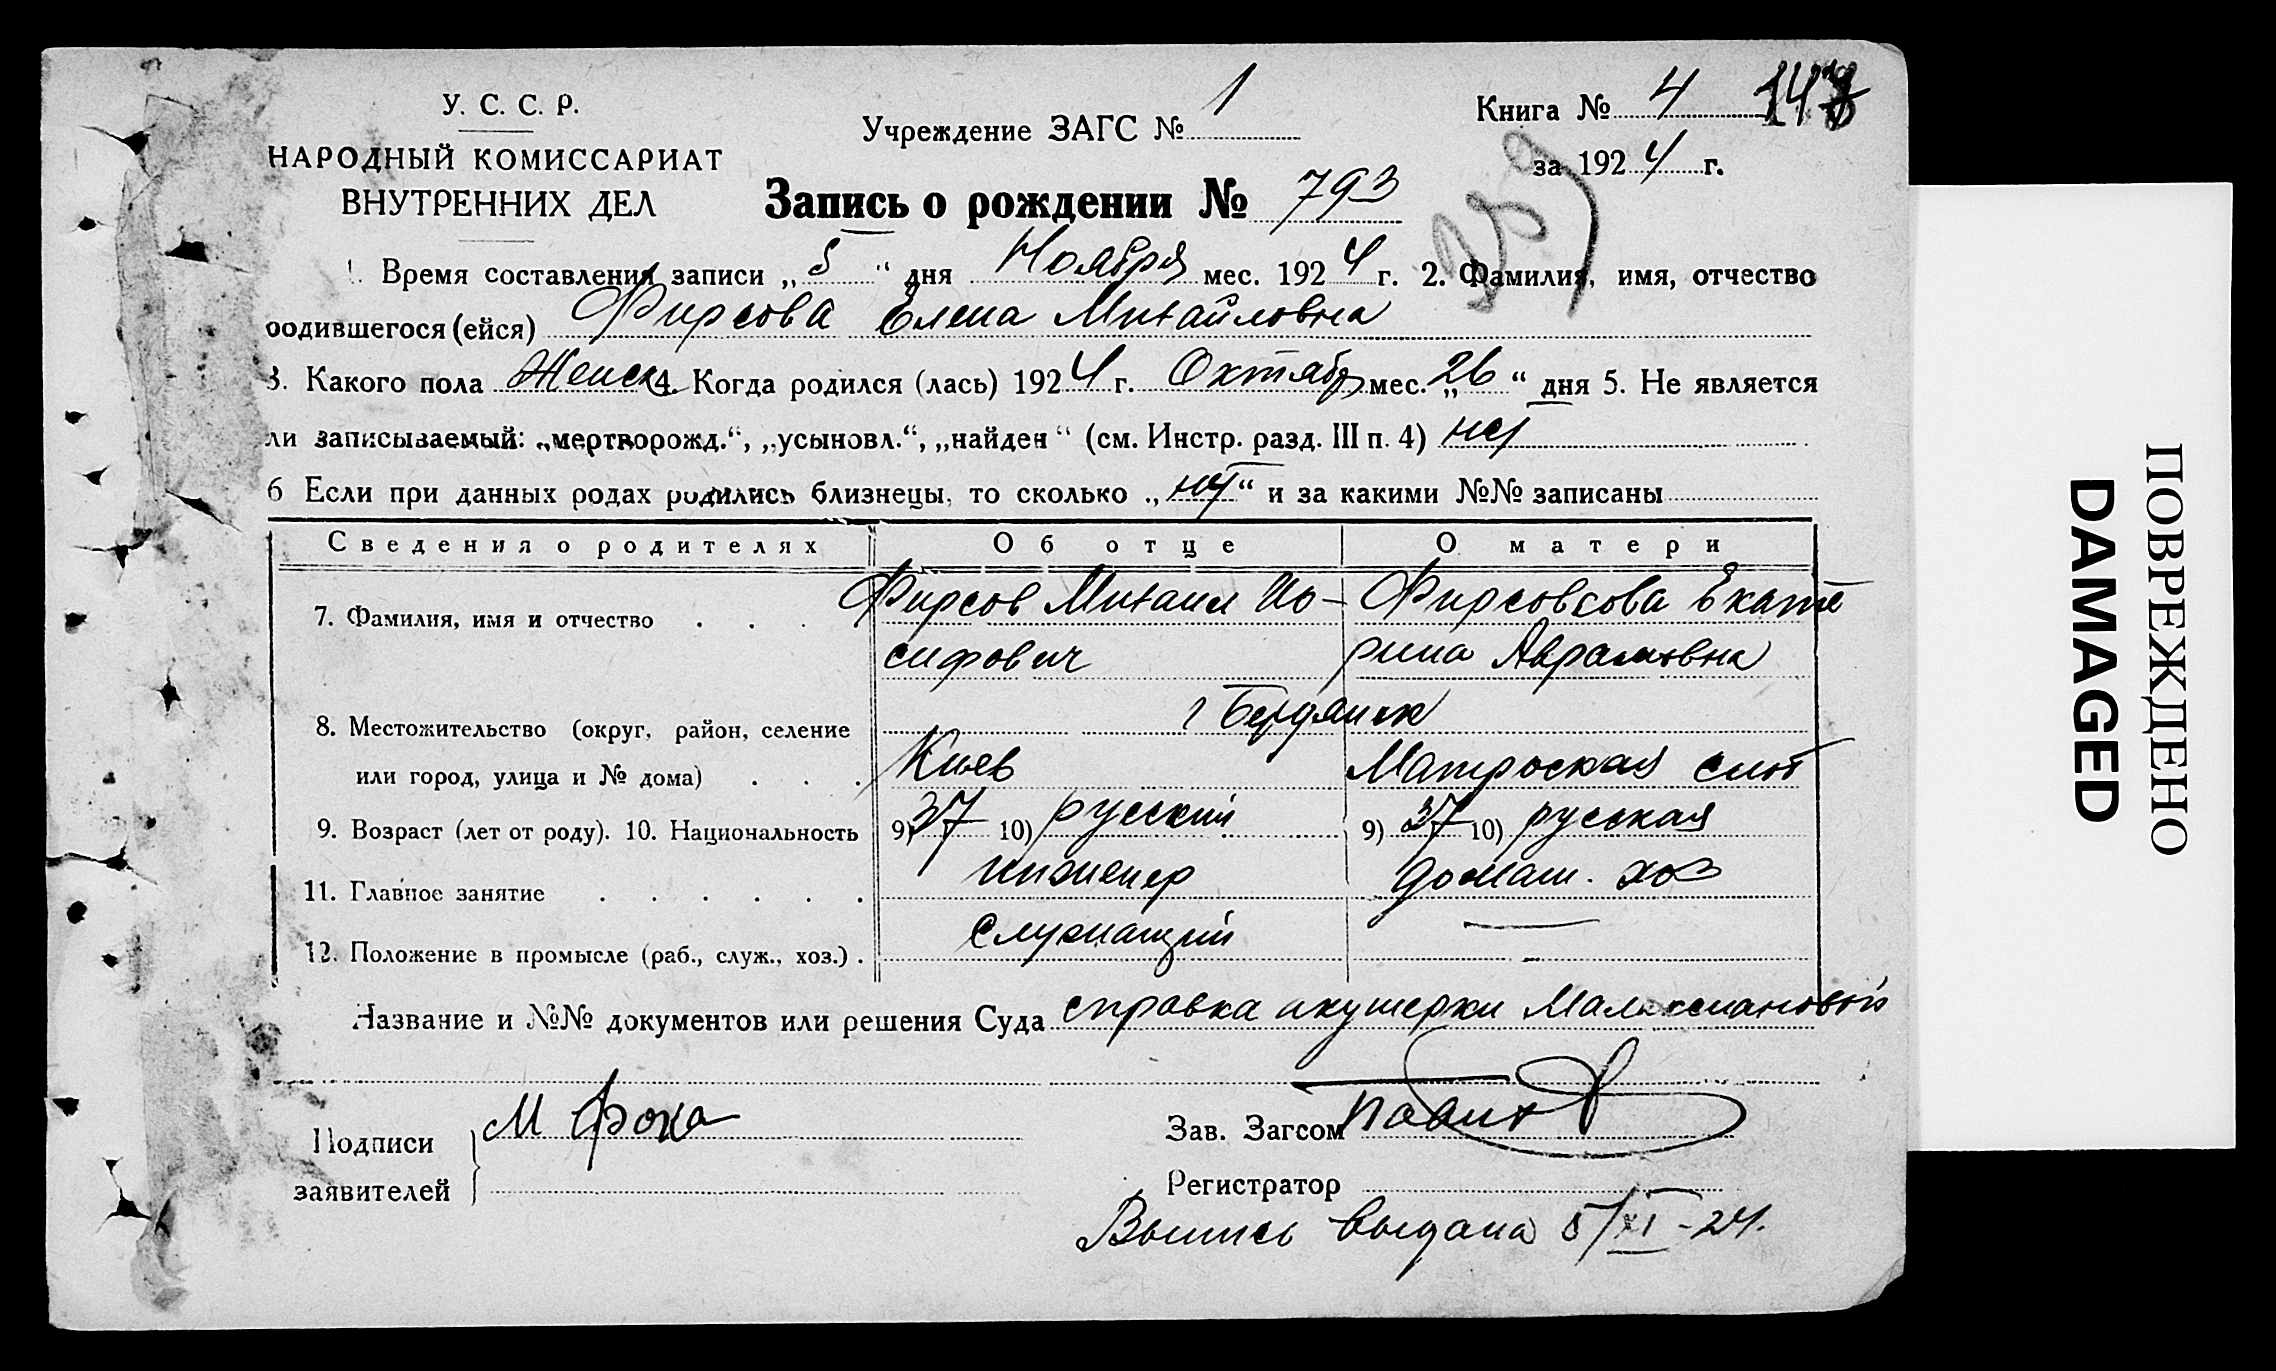 У. С. С. Р.
НАРОДНЫЙ КОМИССАРИАТ
ВНУТРЕННИХ ДЕЛ
Учреждение ЗАГС № 1
Книга № 4
за 1924 г.
Запись о рождении № 793
1. Время составления записи „5“ дня Ноября мес. 1924 г. 2. Фамилия, имя, отчество
родившегося (ейся) Фирсова Елена Михайловна
3. Какого пола Женск 4. Когда родился (лась) 1924 г. Октябр мес. „26“ дня 5. Не является
ли записываемый: „мертворожд.“, „усыновл.“, „найден“ (см. Инстр. разд. III п. 4) нет
6 Если при данных родах родились близнецы, то сколько „нет“ и за какими №№ записаны
Сведения о родителях Об отце О матери
7. Фамилия, имя и отчество Фирсов Михаил Ио- Фирсовсова Екате
сифович рина Аврамовна
г Бердянск
8. Местожительство (округ, район, селение
или город, улица и № дома) Киев Матроская слоб
9. Возраст (лет от роду). 10. Национальность 9) 37 10) русский 9) 37 10) руськая
11. Главное занятие инженер домаш. хоз
12. Положение в промысле (раб., служ., хоз.) служащий —
Название и №№ документов или решения Суда справка акушерки
Подписи
заявителей
М Фока
Зав. Загсом
Регистратор
Выпись выдана 5/XI-24.
ПОВРЕЖДЕНО
DAMAGED